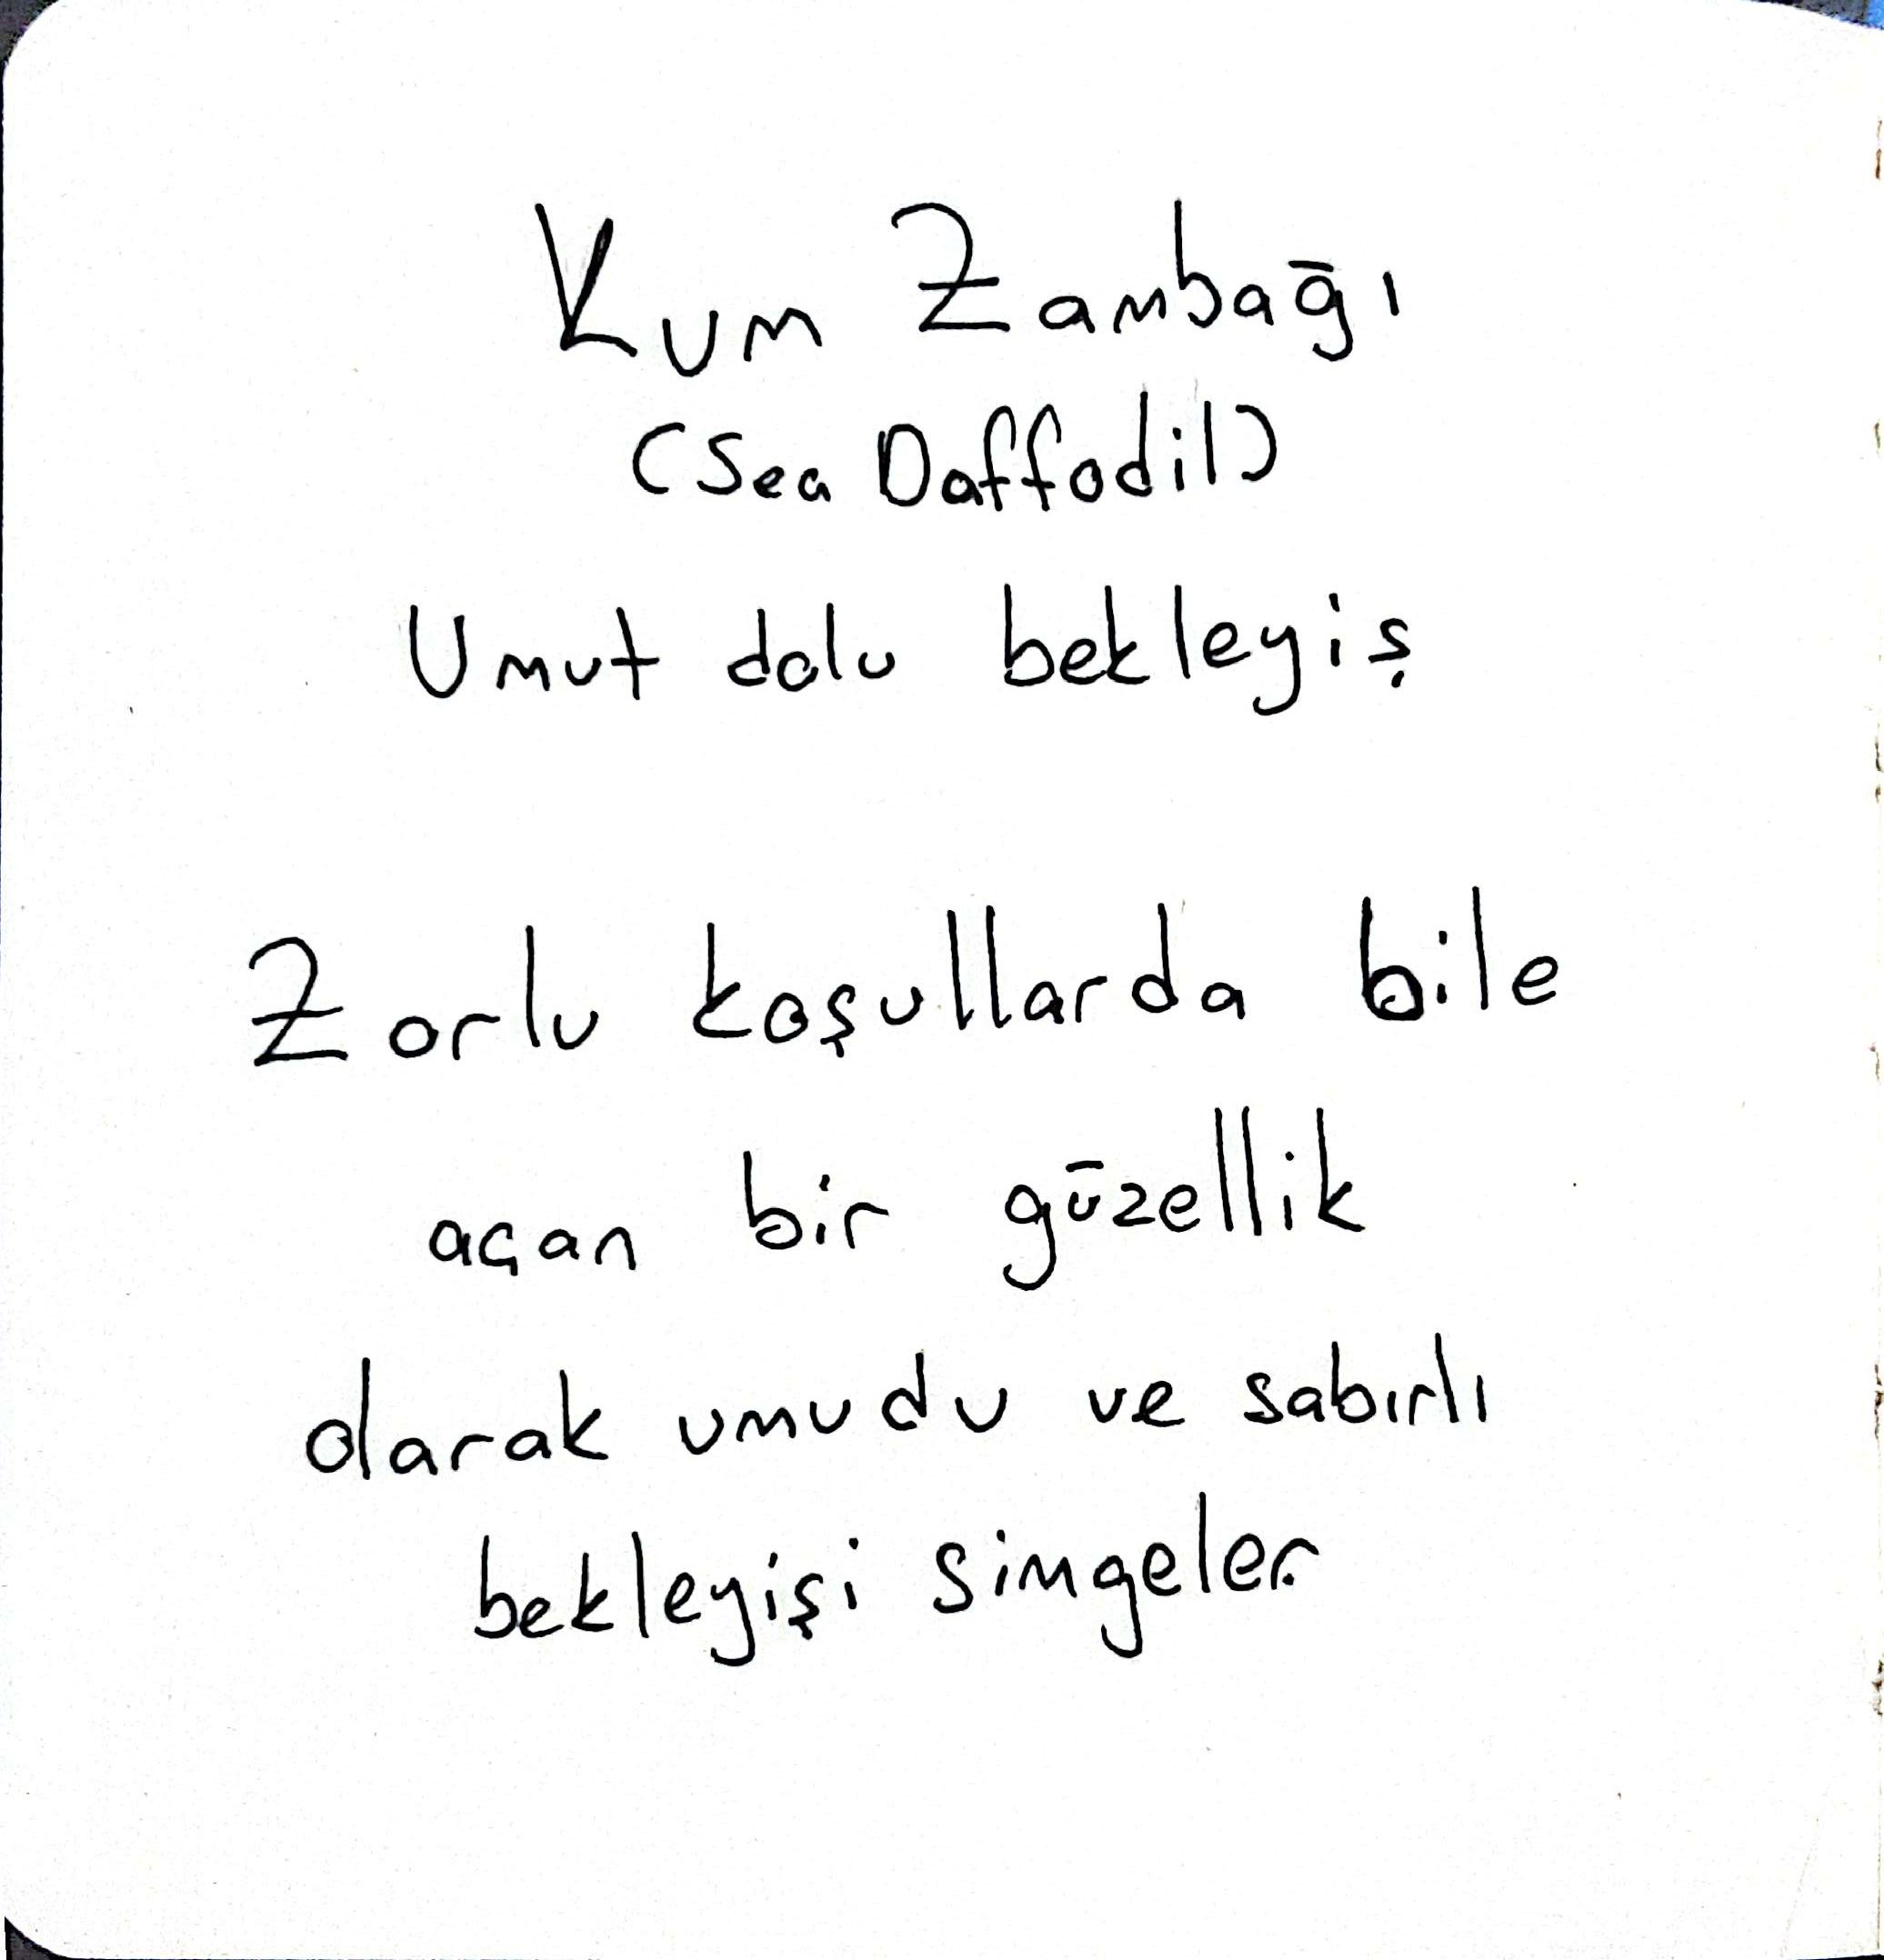 Kum Zambağı
(Sea Daffodil)
Umut dolu bekleyiş
Zorlu koşullarda bile
açan bir güzellik
olarak umudu ve sabırlı
bekleyişi simgeler.